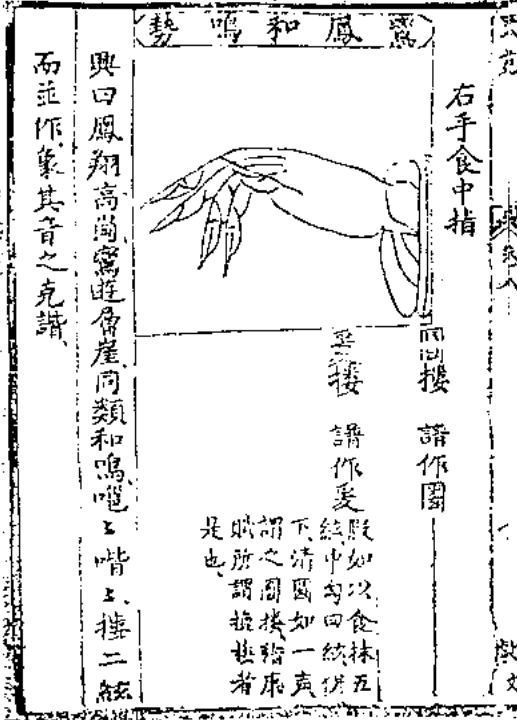 鸞鳳和鳴勢
右手食中指
圓摟 譜作圓
摟 譜作
假如以食抹五
絃中勾四絃俱
下清圓如一声
謂之圓摟嵇康
賦所謂摟者
是也
興曰鳳翔高崗鸞遊層崖同類和鳴噰々喈々摟二絃
而並作象其音之克諧